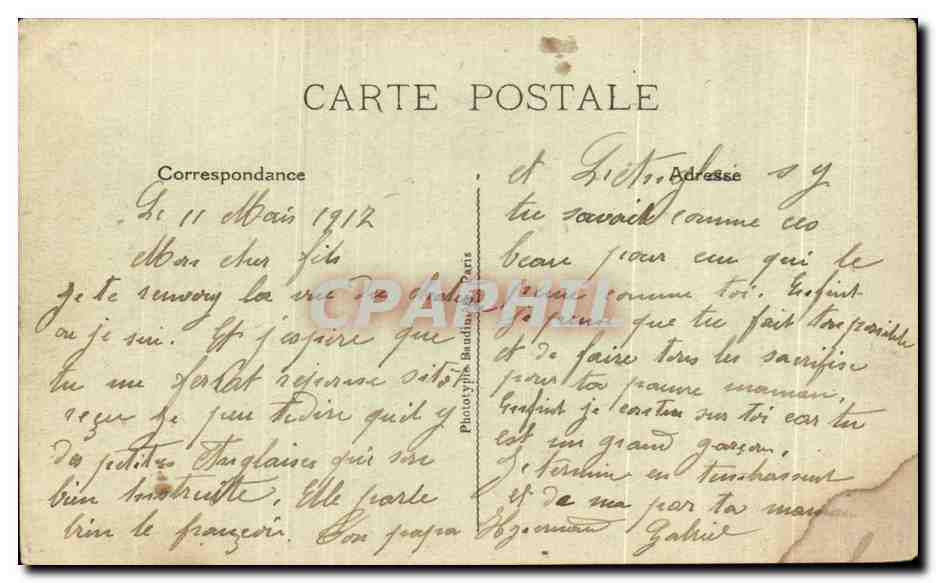 CARTE POSTALE
Correspondance
Le 11 Mais 1917
Mon cher fils
je te renvoy la vue du
ou je sui. Et j'espère que
tu me ferat reponse sitôt
reçu je peu te dire qu'il y
des petites Anglaises qui son
bien instruitte. Elle parle
bien le françois. Ton papa
Phototypie Baudinière, Paris
Adresse
et l'Anglais s y
tu savait comme ces
beau pour ceu qui le
comme toi. Enfint
je pense que tu fait ton possible
et de faire tous les sacrifise
pour ta pauvre maman,
Enfint je conten sur toi car tu
est un grand garçon.
Je termine en tenbrassent
et de me par ta maman
Gabriel
CPARHIL